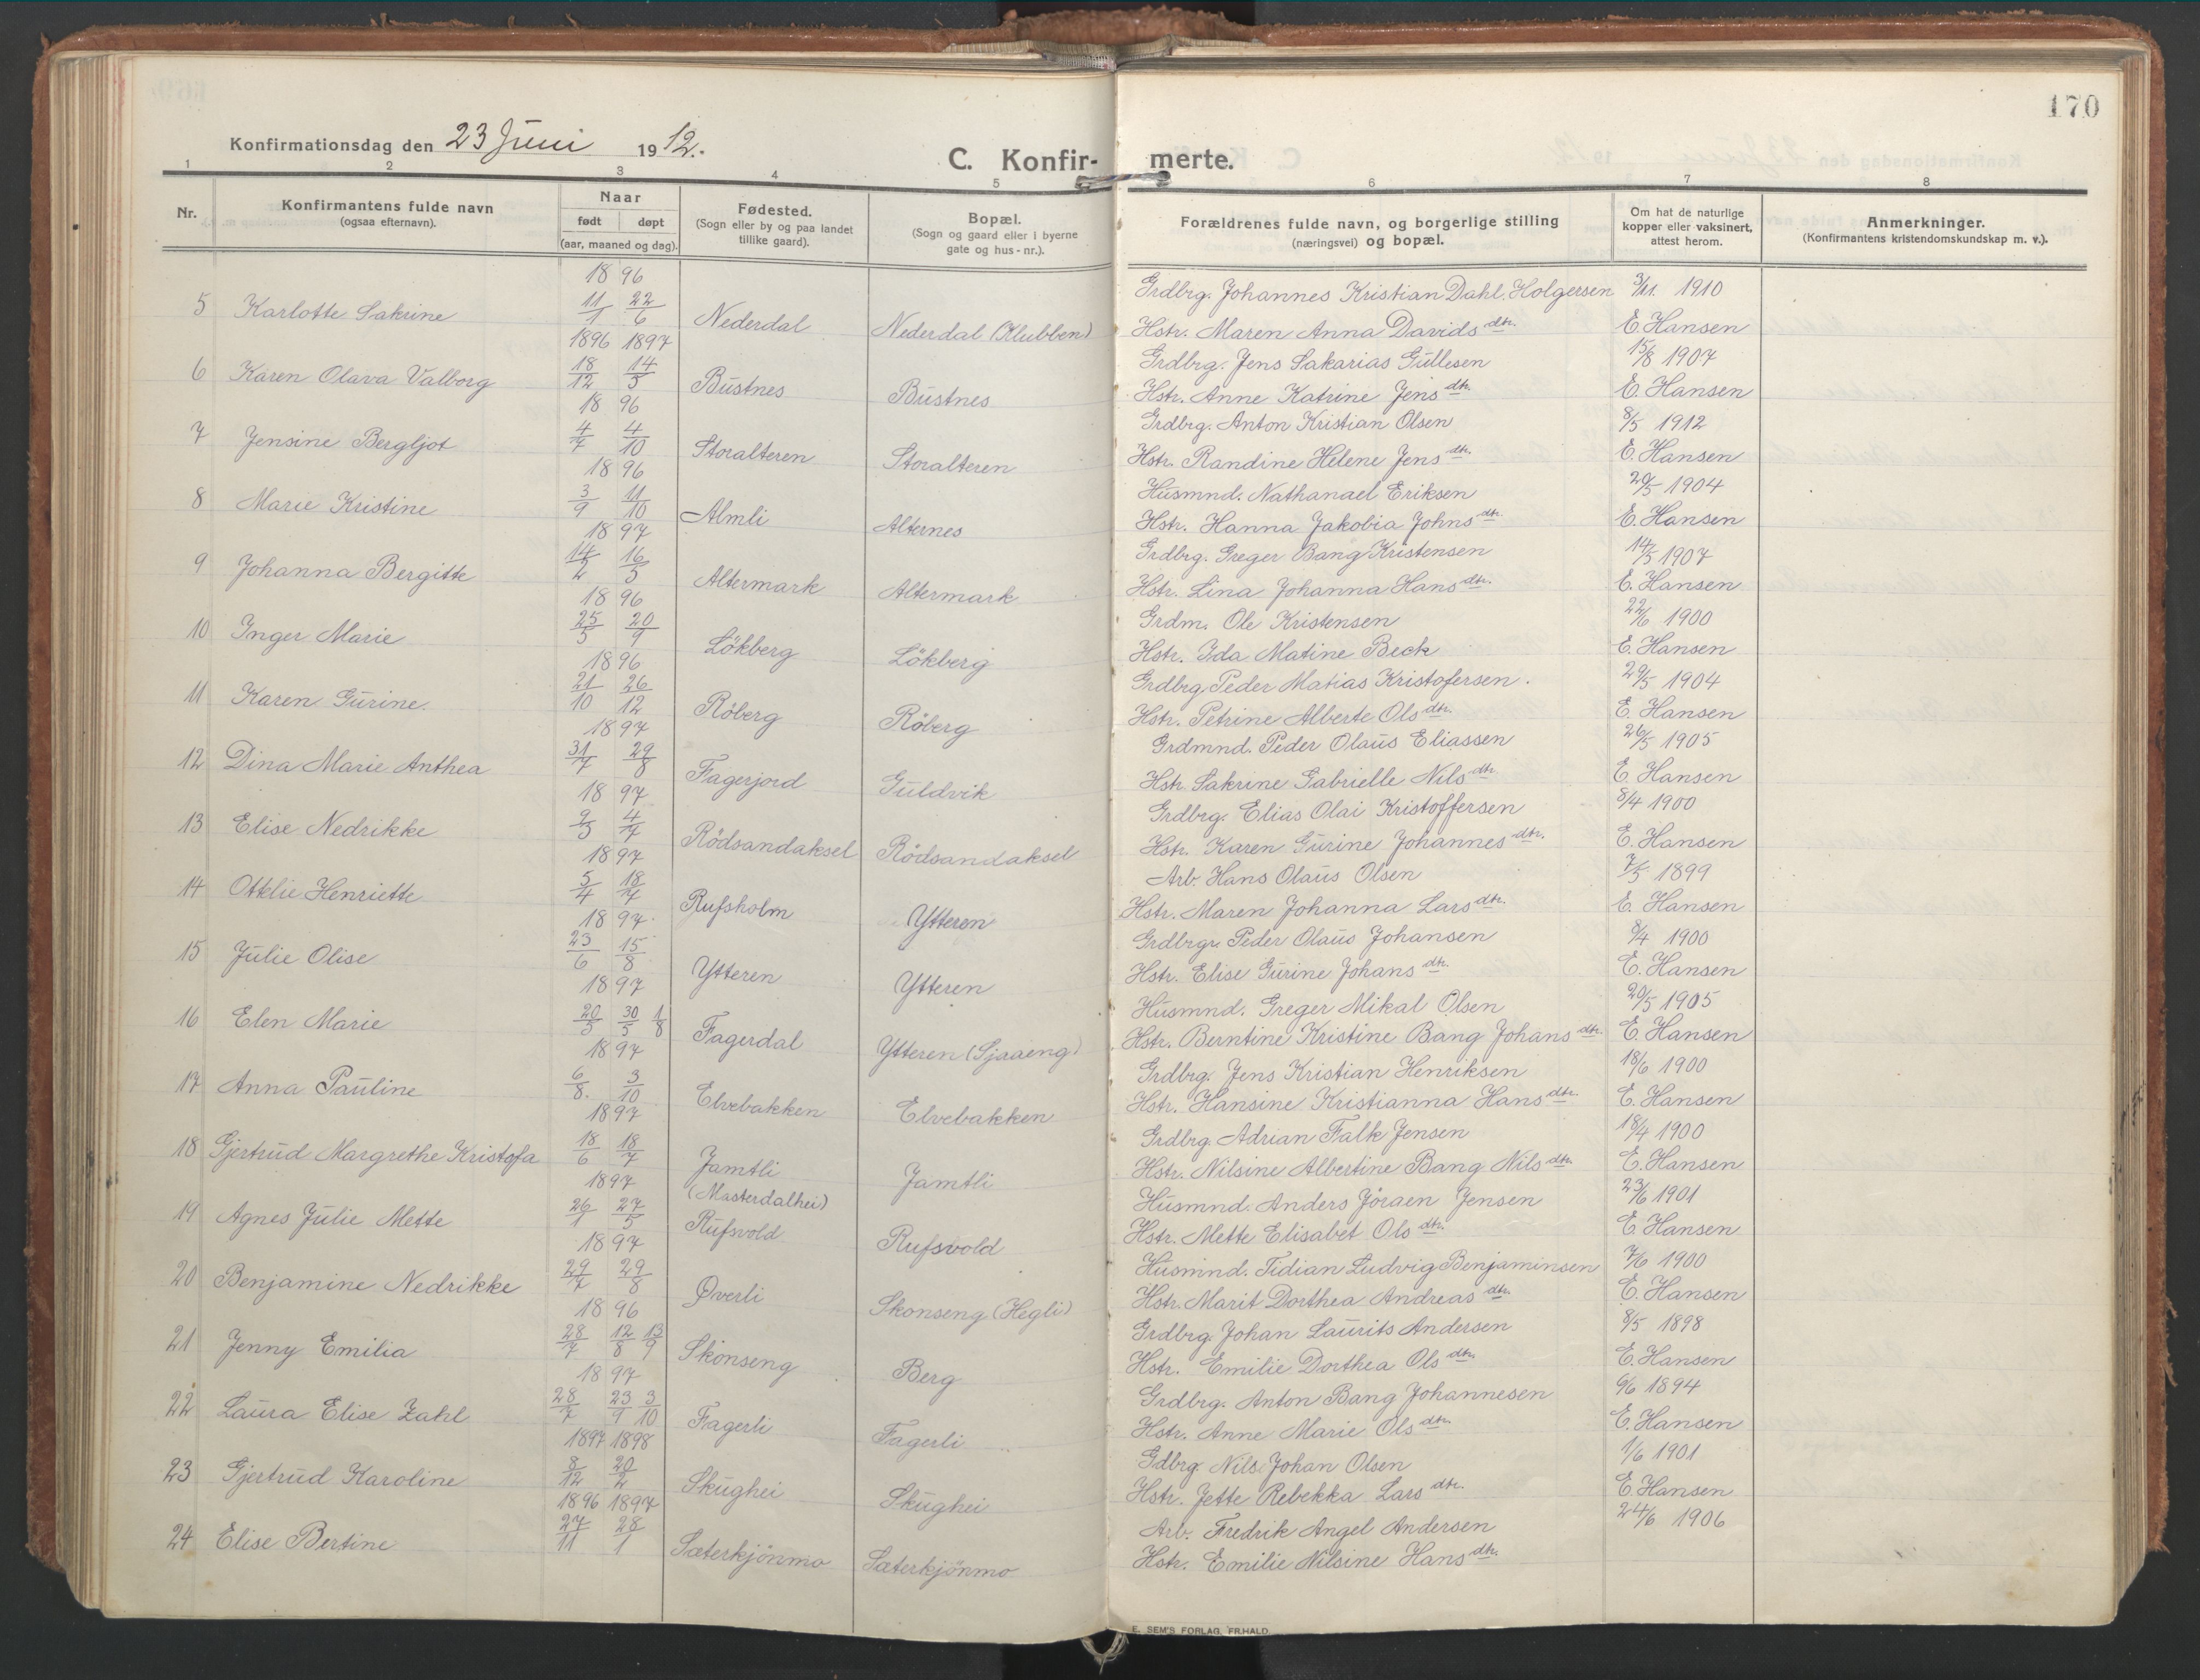 170
Konfirmationsdag den 23 Juni 1912.
C. Konfirmerte.
1 2 3 4 5 6 7 8
Nr. Konfirmantens fulde navn (ogsaa efternavn). Naar født døpt (aar, maaned og dag). Fødested. (Sogn eller by og paa landet tillike gaard). Bopæl. (Sogn og gaard eller i byerne gate og hus-nr.). Forældrenes fulde navn, og borgerlige stilling (næringsvei) og bopæl. Om hat de naturlige kopper eller vaksinert, attest herom. Anmerkninger. (Konfirmantens kristendomskundskap m. v.).
1896 Grdbrg. Johannes Kristian Dahl Holgersen 3/11. 1910
5 Karlotte Sakrine 11/1 22/6 Nederdal Nederdal (Klubben) Hstr. Maren Anna Davidsdtr. E. Hansen
1896 1897 Grdbrg. Jens Sakarias Gullesen 15/8 1907
6 Karen Olava Valborg 18/12 14/3 Bustnes Bustnes Hstr. Anne Katrine Jensdtr. E. Hansen
1896 Grdbrg. Anton Kristian Olsen 8/5 1912
7 Jensine Bergljot 4/7 4/10 Storalteren Storalteren Hstr. Randine Helene Jensdtr. E. Hansen
1896 Husmnd. Nathanael Eriksen 20/5 1904
8 Marie Kristine 3/9 11/10 Almli Alternes Hstr. Hanna Jakobia Johnsdtr. E. Hansen
1897 Grdbrg. Greger Bang Kristensen 14/5 1907
9 Johanna Bergitte 14/2 16/5 Altermark Altermark Hstr. Lina Johanna Hansdtr. E. Hansen
1896 Grdm. Ole Kristensen 22/6 1900
10 Inger Marie 25/5 20/9 Lökberg Lökberg Hstr. Ida Matine Beck E. Hansen
1896 Grdbrg. Peder Matias Kristofersen. 29/5 1904
11 Karen Gurine. 21/10 26/12 Röberg Röberg Hstr. Petrine Alberte Olsdtr. E. Hansen
1897 Grdmnd. Peder Olaus Eliassen 26/5 1905
12 Dina Marie Anthea 31/7 29/8 Fagerjord Guldvik Hstr. Sakrine Gabrielle Nilsdtr. E. Hansen
1897 Grdbrg. Elias Olai Kristoffersen 8/4 1900
13 Elise Nedrikke 9/3 4/7 Rödsandaksel Rödsandaksel Hstr. Karen Gurine Johannesdtr. E. Hansen
1897 Arb. Hans Olaus Olsen 7/5 1899
14 Ottelie Henriette 5/4 18/7 Rufsholm Ytteren Hstr. Maren Johanna Larsdtr. E. Hansen
1897. Grdbrgr. Peder Olaus Johansen 8/4 1900
15 Julie Olise 23/6 15/8 Ytteren Ytteren Hstr. Elise Gurine Johansdtr. E. Hansen
1897 Husmnd. Greger Mikal Olsen 20/5 1905
16 Elen Marie 20/5 30/5 1/8 Fagerdal Ytteren (Sjaaeng) Hstr. Berntine Kristine Bang Johansdtr. E. Hansen
1897 Grdbrg. Jens Kristian Henriksen 18/6 1900
17 Anna Pauline 6/8. 3/10 Elvebakken Elvebakken Hstr. Hansine Kristianna Hansdtr. E. Hansen
1897 Grdbrg. Adrian Falk Jensen 18/4 1900
18 Gjertrud Margrethe Kristofa 18/6 18/7 Jamtli Jamtli Hstr. Nilsine Albertine Bang Nilsdtr. E. Hansen
1897 (Masterdalhei) Husmnd. Anders Jöraen Jensen 23/6 1901
19 Agnes Julie Mette 26/1 27/5 Rufsvold Rufsvold Hstr. Mette Elisabet Olsdtr. E. Hansen
1897 Husmnd. Tidian Ludvig Benjaminsen 7/6 1900
20 Benjamine Nedrikke 29/7 29/8 Øverli Skonseng (Hegli) Hstr. Marit Dorthea Andreasdtr. E. Hansen
1896 Grdbrg. Johan Laurits Andersen 8/5 1898
21 Jenny Emilia 28/7 12/8 13/9 Skonseng Berg Hstr. Emilie Dorthea Olsdtr. E. Hansen
1897 Grdbrg. Anton Bang Johannesen 6/6 1894
22 Laura Elise Zahl 28/7 23/9 3/10 Fagerli Fagerli Hstr. Anne Marie Olsdtr. E. Hansen
1897 1898 Gdbrg. Nils Johan Olsen 1/6 1901
23 Gjertrud Karoline 8/12 20/2 Skughei Skughei Hstr. Jette Rebekka Larsdtr. E. Hansen
1896 1897 Arb. Fredrik Angel Andersen 24/6 1906
24 Elise Bertine 27/11 28/1 Sæterkjönmo Sæterkjönmo Hstr. Emilie Nilsine Hansdtr.
E. SEM'S FORLAG, FR.HALD.